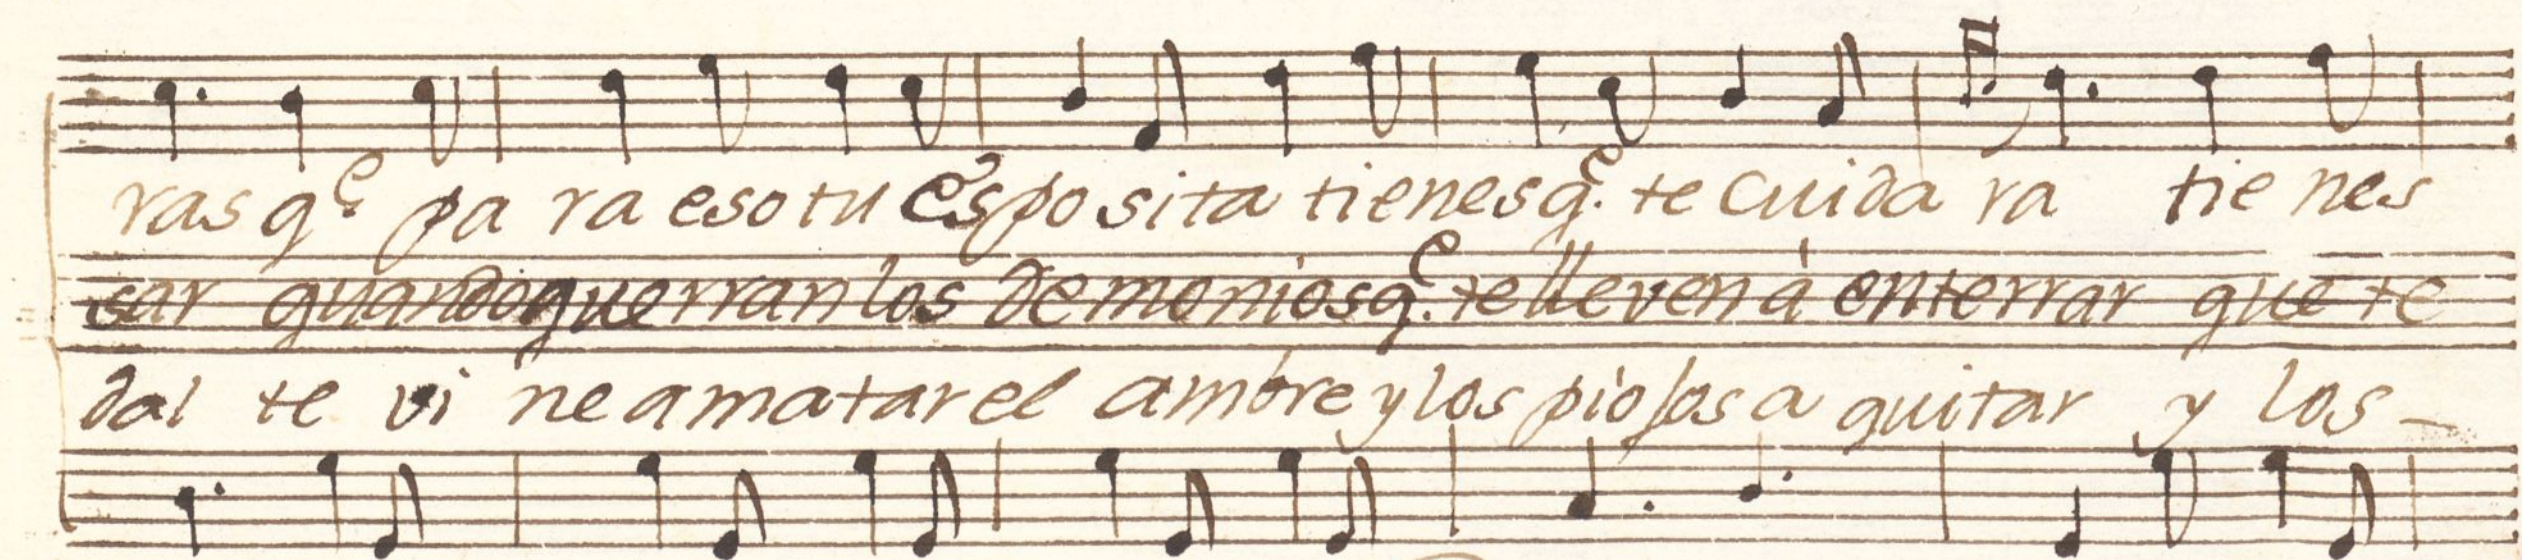 ras q.e pa ra eso tu esposita tienes q.e te cuida ra tie nes
sar quando querran los demonios q.e te lleven à enterrar que te
dal te vi ne a matar el ambre y los piojos a quitar y los